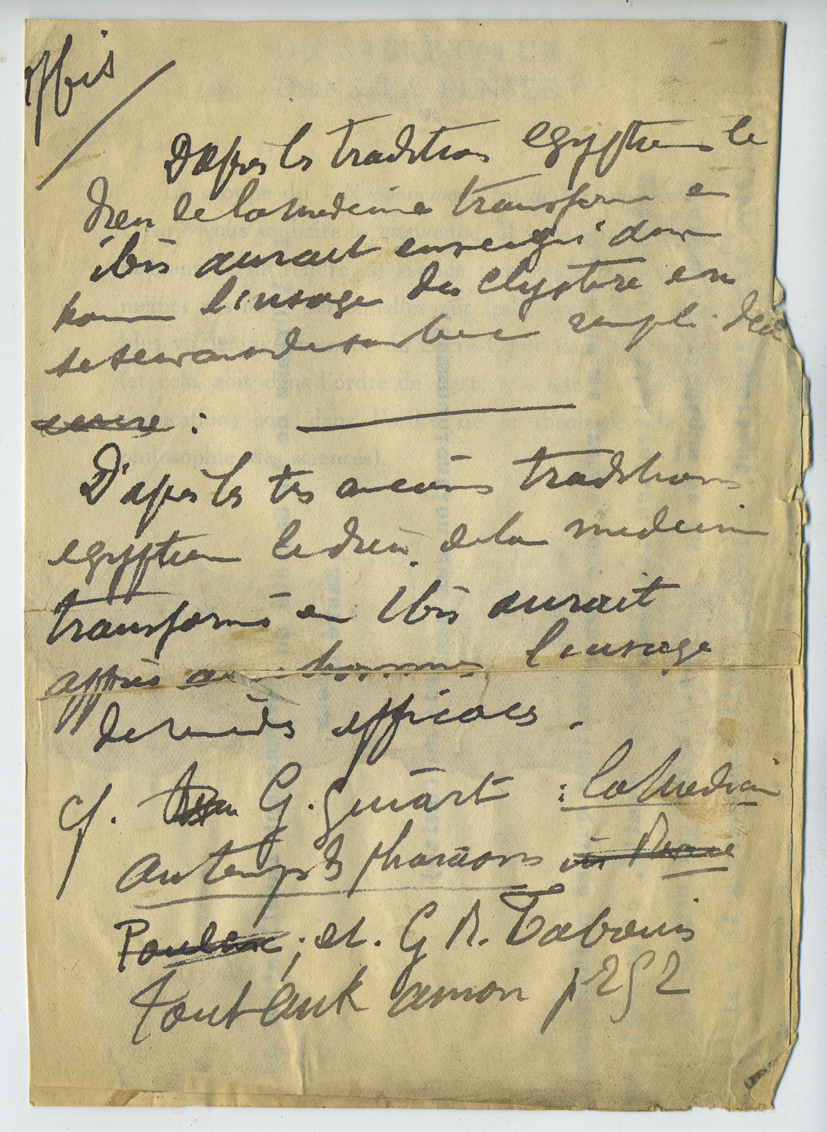 D'après les traditions egyptiennes le
dieu de la medecine transformé en
ibis aurait enseigné aux
hommes l'usage des clystere en
se servant de son bec rempli d'eau
:
D'après les tres anciens traditions
egyptien le dieu de la medecine
transformé en Ibis aurait
appris aux hommes l'usage
de remèdes efficaces.
cf. G. Guiart : la Medecine
au temps des pharaons in Revue
Poulenc ; et. G R. Tabouis
Toutankamon p 252